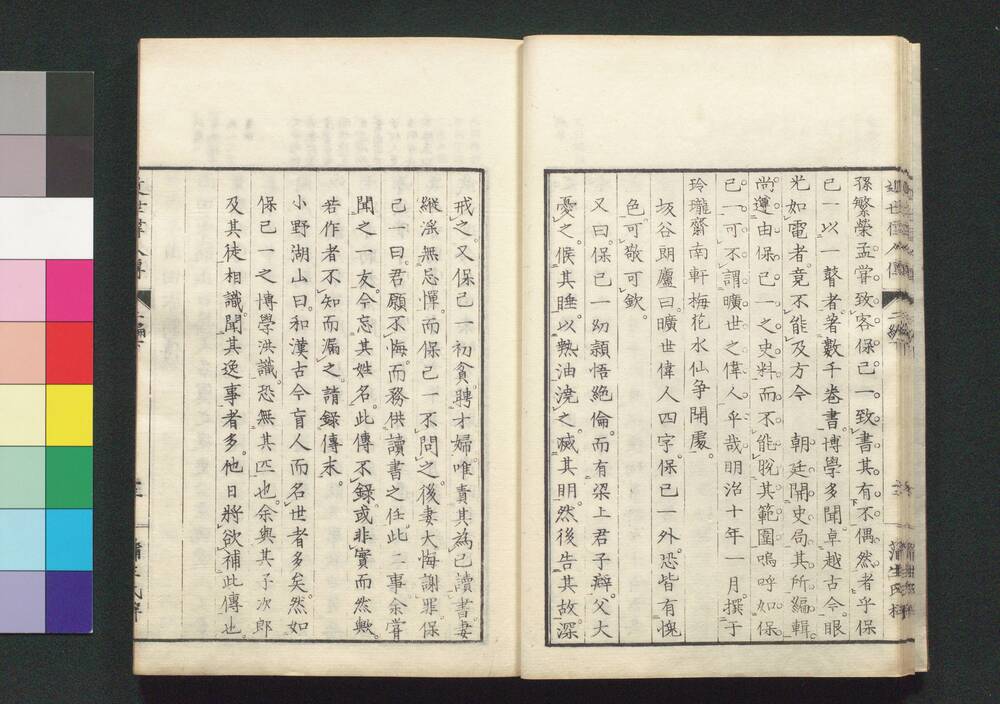 孫繁榮孟甞致客保己一致書其有不偶然者乎保
己一以一瞽者著數千卷書博學多聞卓越古今眼
光如電者竟不能及方今 朝廷開史局其所編輯
尚遵由保己一之史料而不能脫其範圍嗚呼如保
己一可不謂曠世之偉人乎哉明治十年一月撰于
玲瓏齋南軒梅花水仙爭開處
坂谷朗廬曰曠世偉人四字保己一外恐皆有愧
色可敬可欽
又曰保己一幼頴悟絶倫而有梁上君子癖父大
憂之候其睡以熱油澆之滅其明然後告其故深
戒之又保己一初貧聘才婦唯責其為己讀書妻
縱淫無忌憚而保己一不問之後妻大悔謝罪保
己一曰君願不悔而務供讀書之任此二事余甞
聞之一友今忘其姓名此傳不錄或非實而然歟
若作者不知而漏之請錄傳末
小野湖山曰和漢古今盲人而名世者多矣然如
保己一之博學洪識恐無其匹也余與其子次郎
及其徒相識聞其逸事者多他日將欲補此傳也